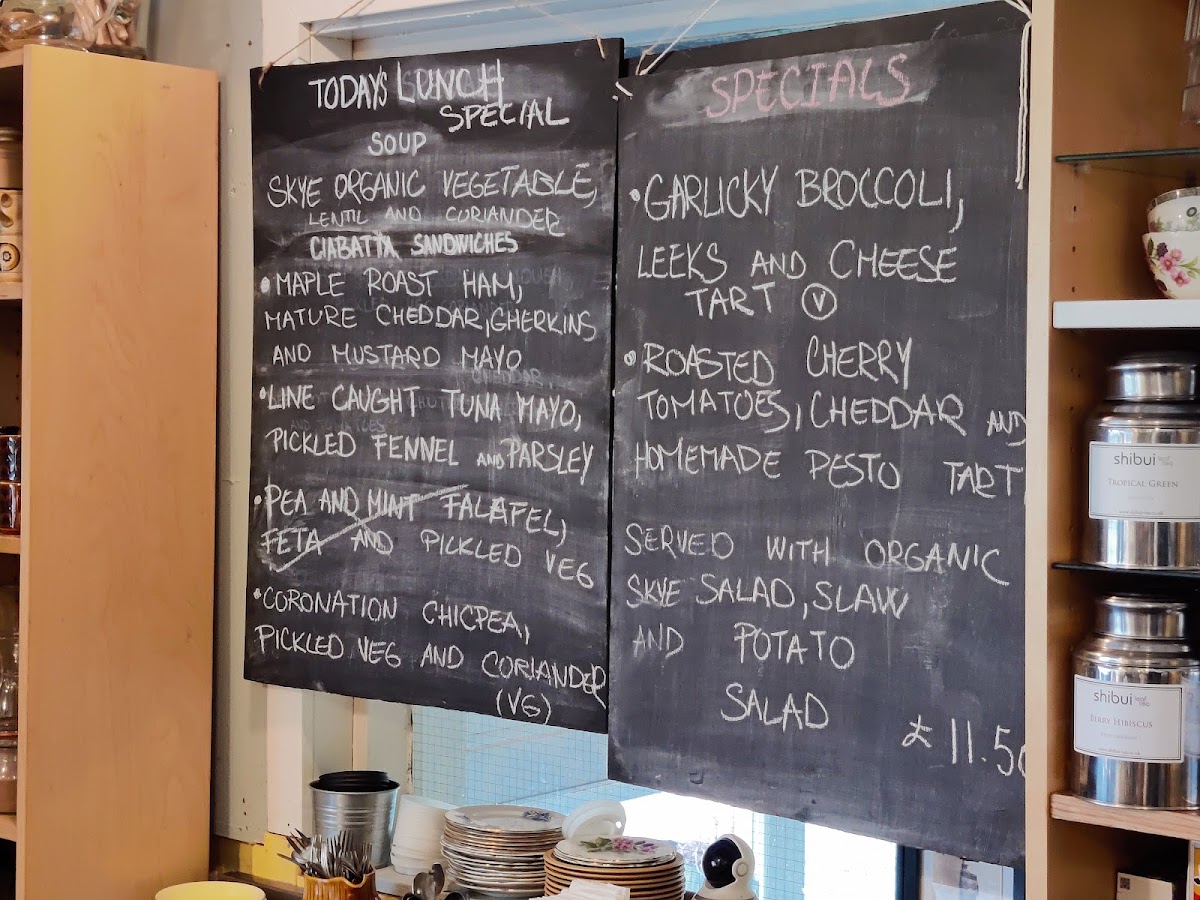 TODAYS LUNCH
SPECIAL
SOUP
SKYE ORGANIC VEGETABLE,
LENTIL AND CORIANDER
CIABATTA SANDWICHES
• MAPLE ROAST HAM,
MATURE CHEDDAR, GHERKINS
AND MUSTARD MAYO
• LINE CAUGHT TUNA MAYO,
PICKLED FENNEL AND PARSLEY
• PEA AND MINT FALAFEL,
FETA AND PICKLED VEG
• CORONATION CHICPEA,
PICKLED VEG AND CORIANDER
(VG)
SPECIALS
• GARLICKY BROCCOLI,
LEEKS AND CHEESE
TART V
• ROASTED CHERRY
TOMATOES, CHEDDAR AND
HOMEMADE PESTO TART
SERVED WITH ORGANIC
SKYE SALAD, SLAW
AND POTATO
SALAD
£11.50
shibui leaf tea
TROPICAL GREEN
shibui leaf tea
BERRY HIBISCUS